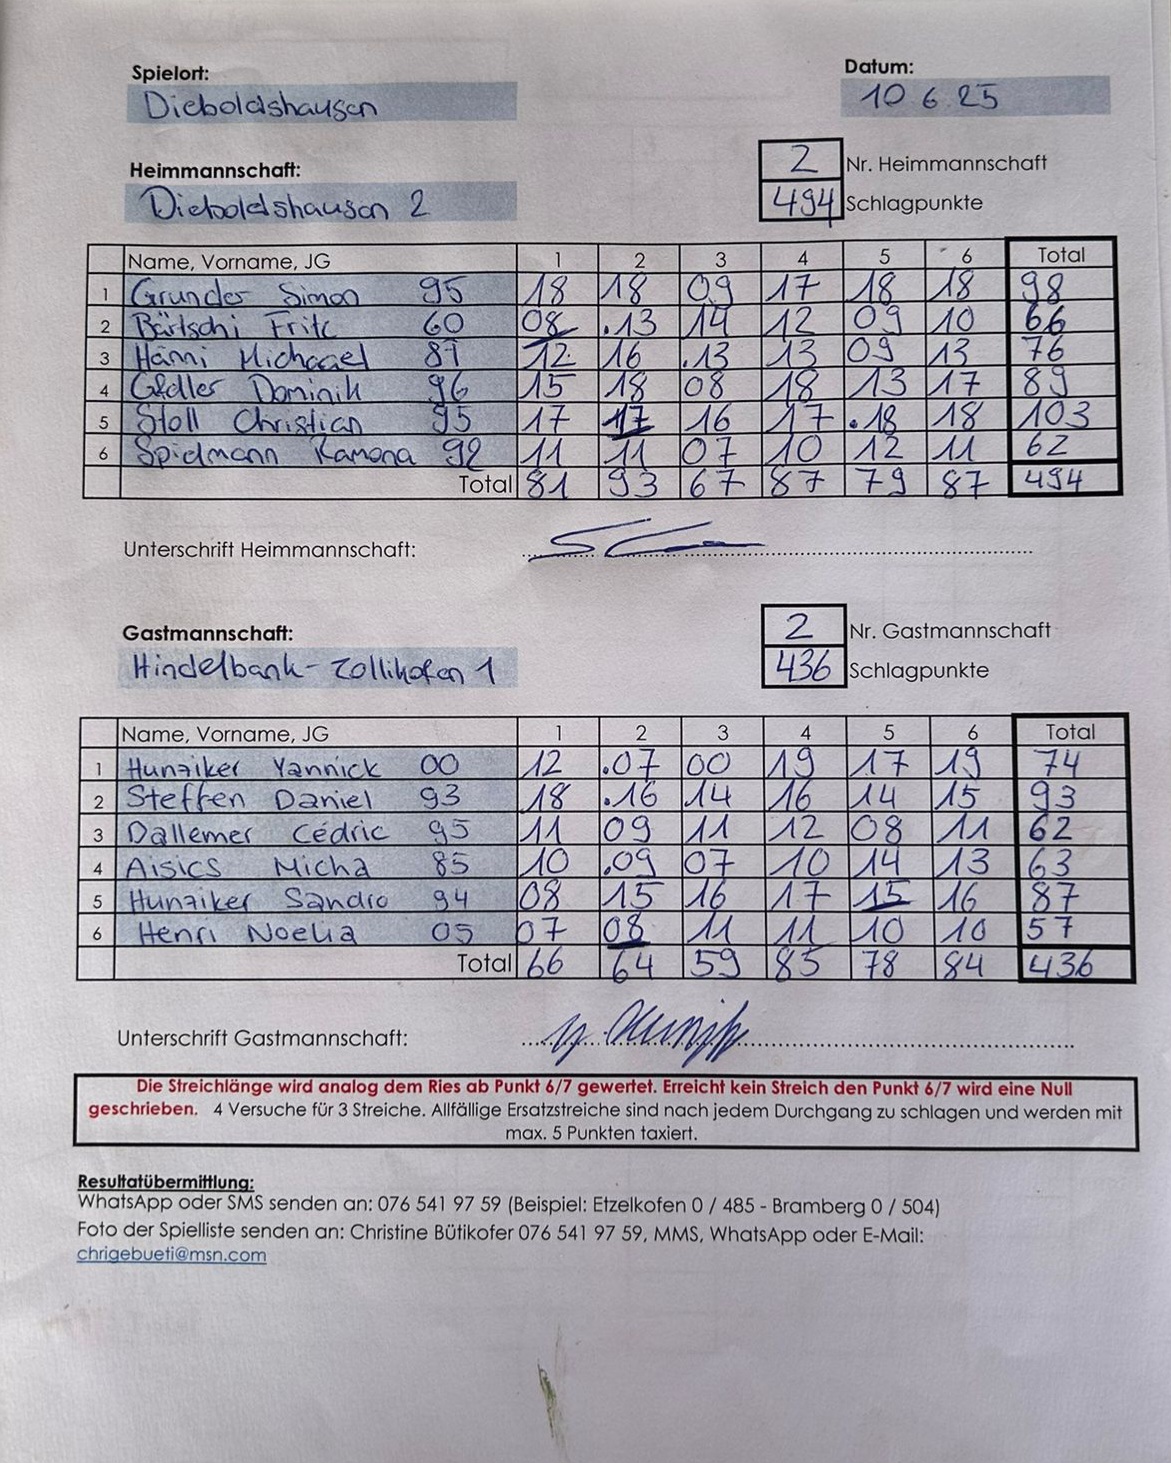 Spielort:
Dieboldshausen
Datum:
10 6 25
Heimmannschaft:
Dieboldshausen 2
2 Nr. Heimmannschaft
494 Schlagpunkte
Name, Vorname, JG 1 2 3 4 5 6 Total
1 Grunder Simon 95 18 18 09 17 18 18 98
2 Bärtschi Fritz 60 08 .13 14 12 09 10 66
3 Hänni Michael 87 12. 16 .13 13 09 13 76
4 Dominik 96 15 18 08 18 13 17 89
5 Stoll Christian 95 17 17 16 17 .18 18 103
6 Spielmann Ramona 92 11 11 07 10 12 11 62
Total 81 93 67 87 79 87 494
Unterschrift Heimmannschaft:
Gastmannschaft:
Hindelbank- Zollikofen 1
2 Nr. Gastmannschaft
436 Schlagpunkte
Name, Vorname, JG 1 2 3 4 5 6 Total
1 Hunziker Yannick 00 12 .07 00 19 17 19 74
2 Steffen Daniel 93 18 .16 14 16 14 15 93
3 Dallemer Cédric 95 11 09 11 12 08 11 62
4 Aisics Micha 85 10 .09 07 10 14 13 63
5 Hunziker Sandro 94 08 15 16 17 15 16 87
6 Henri Noelia 05 07 08 11 11 10 10 57
Total 66 64 59 85 78 84 436
Unterschrift Gastmannschaft:
Die Streichlänge wird analog dem Ries ab Punkt 6/7 gewertet. Erreicht kein Streich den Punkt 6/7 wird eine Null
geschrieben. 4 Versuche für 3 Streiche. Allfällige Ersatzstreiche sind nach jedem Durchgang zu schlagen und werden mit
max. 5 Punkten taxiert.
Resultatübermittlung:
WhatsApp oder SMS senden an: 076 541 97 59 (Beispiel: Etzelkofen 0 / 485 - Bramberg 0 / 504)
Foto der Spielliste senden an: Christine Bütikofer 076 541 97 59, MMS, WhatsApp oder E-Mail:
chrigebueti@msn.com